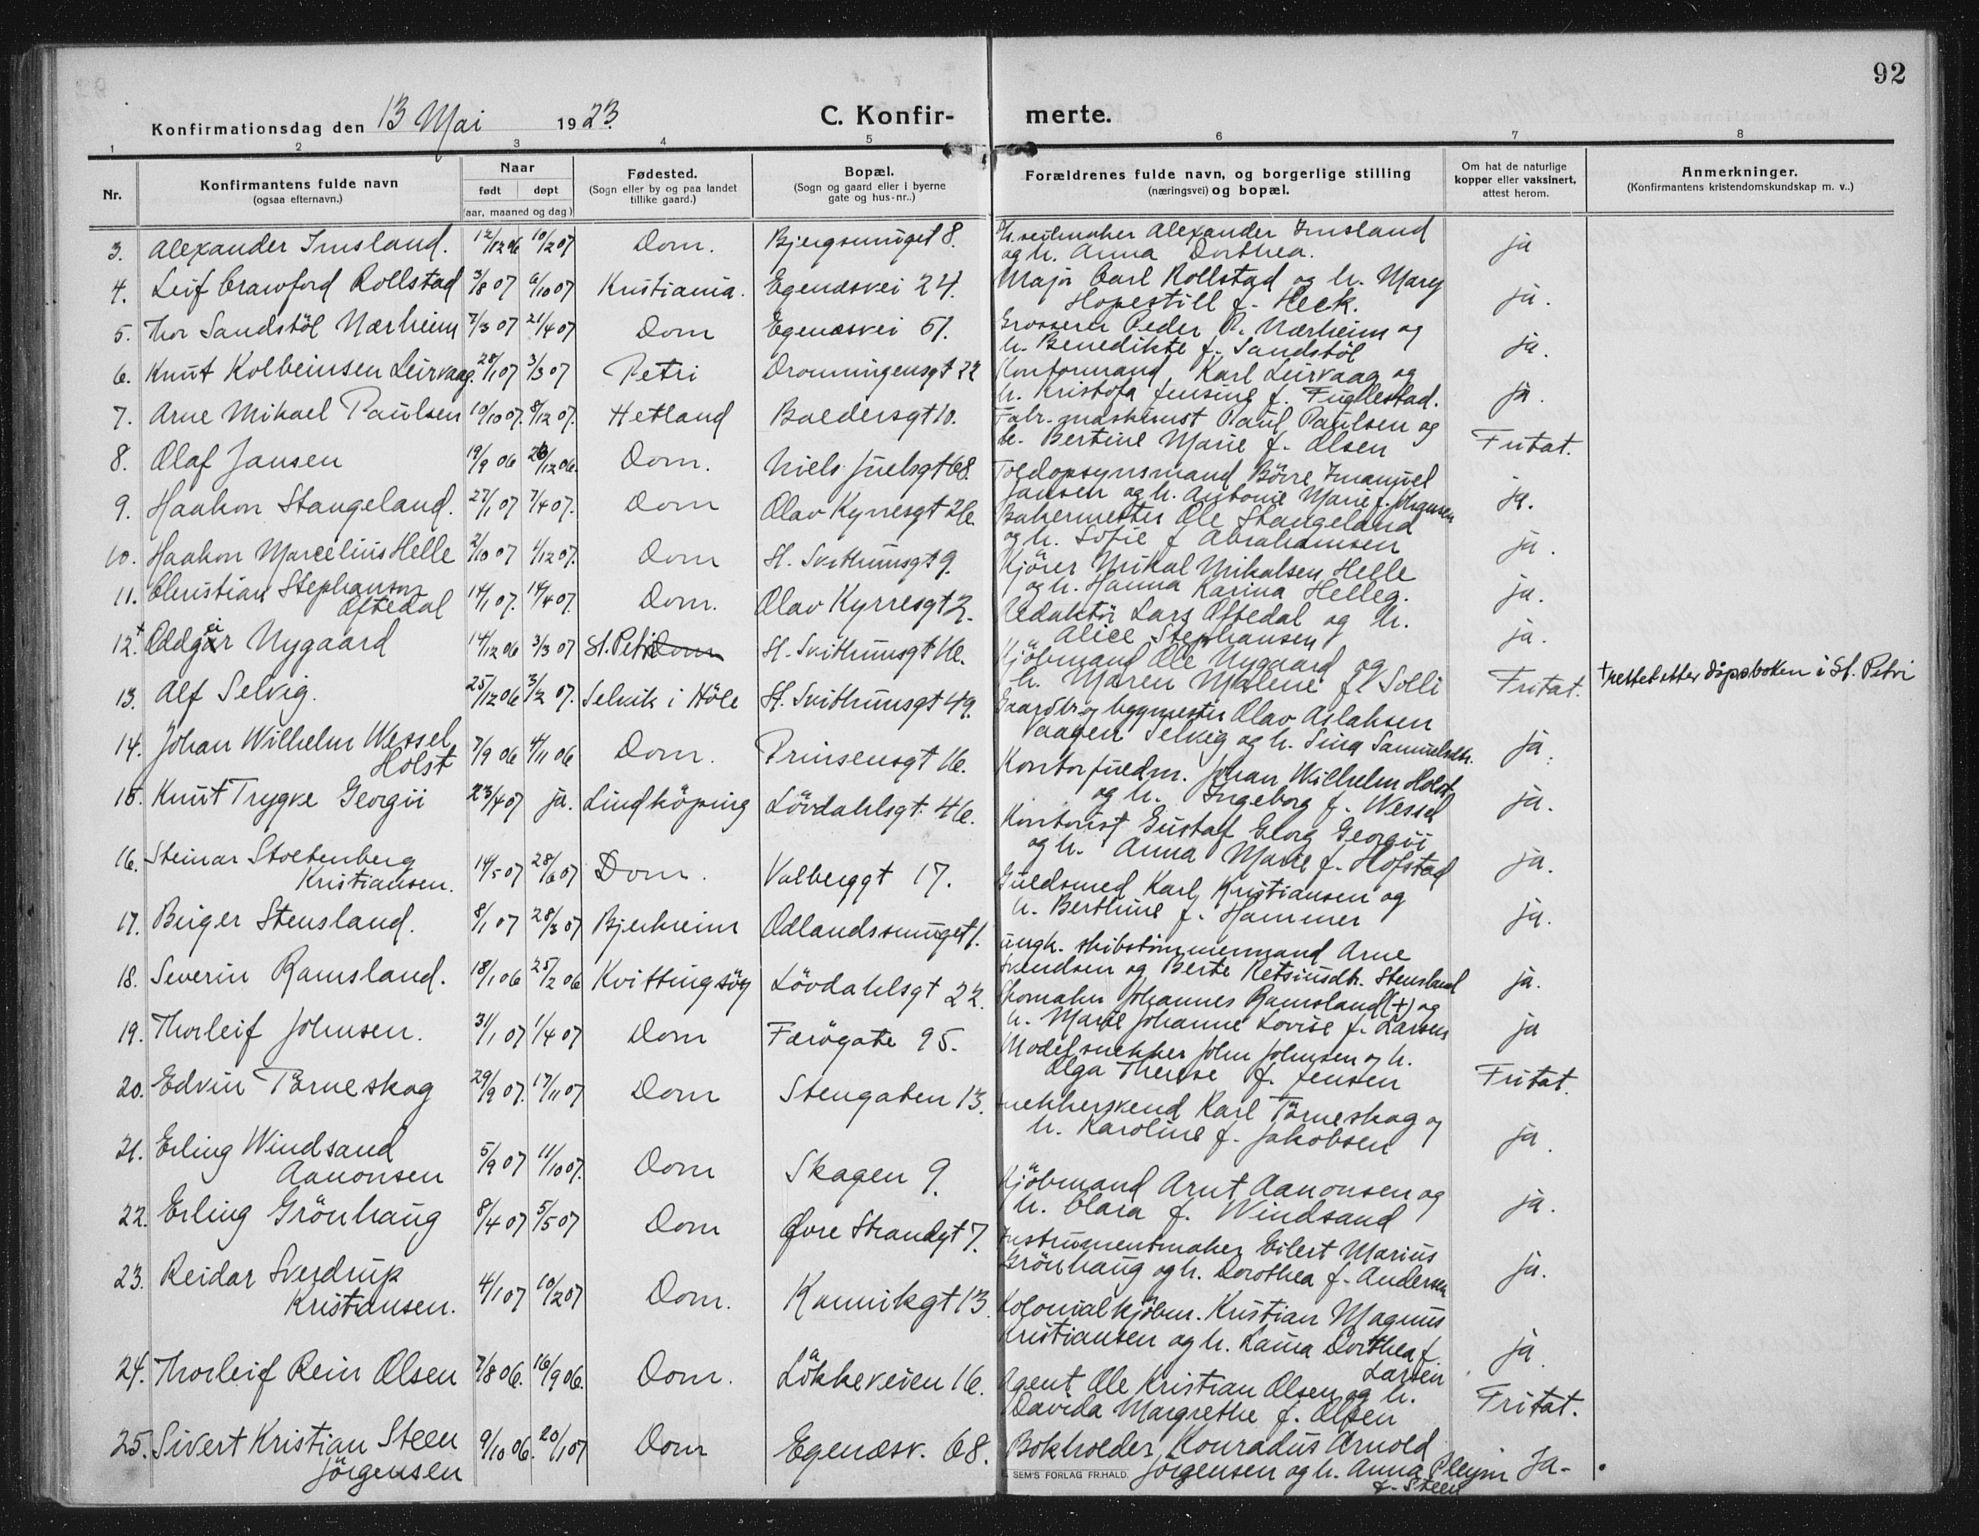 92
Konfirmationsdag den 13 Mai 1923.
C. Konfirmerte.
1 2 3 4 5 6 7 8
Nr.
Konfirmantens fulde navn
(ogsaa efternavn.)
Naar
født døpt
(aar, maaned og dag)
Fødested.
(Sogn eller by og paa landet
tillike gaard.)
Bopæl.
(Sogn og gaard eller i byerne
gate og hus-nr..)
Forældrenes fulde navn, og borgerlige stilling
(næringsvei) og bopæl.
Om hat de naturlige
kopper eller vaksinert,
attest herom.
Anmerkninger.
(Konfirmantens kristendomskundskap m. v..)
3. Alexander Imsland. 12/12 06 10/2 07 Dom. Bjergsmuget 8. Alexander Imsland
og h. Anna Dorthea. ja
4. Leif Crawford Rollstad 3/8 07 6/10 07 Kristiania. Egenæsvei 24. Major Carl Rollstad og h. Mary
Hopestill f. Heck. ja.
5. Thor Sandstöl Nærheim 7/3 07 21/4 07 Dom Egenæsvei 51. Grosserer Peder R. Nærheim og
h. Benedikte f. Sandstöl ja.
6. Knut Kolbeinsen Leirvaag. 28/1 07 3/3 07 Petri Dronningensgt 22 Kontormand Karl Leirvaag og
h. Kristofa Jensine f. Fuglestad. ja.
7. Arne Mikael Paulsen 10/10 07. 8/12 07. Hetland Baldersgt 10. Fabr. maskinist Paul Paulsen og
h. Bertine Marie f. Olsen Fritat.
8. Olaf Jansen 19/9 06 26/12 06. Dom. Niels Juelsgt 68. Toldopsynsmand Börre Imanuel
Jansen og h. Antonie Marie f. Mogensen ja.
9. Haakon Stangeland. 27/1 07 7/4 07. Dom Olav Kyrresgt 26. Bakermester Ole Stangeland
og h. Sofie f Abrahamsen ja.
10. Haakon Marcelius Helle 2/10 07 1/12 07. Dom St. Svithunsgt 9. Kjörer Mikal Mikalsen Helle
og h. Hanna Karina Helleg. ja.
11. Christian Stephanson
Oftedal 14/1 07. 14/4 07. Dom. Olav Kyrresgt 2. Redaktör Lars Oftedal og h.
Alice Stephansen ja.
12.+ Oddgeir Nygaard 14/12 06 3/3 07 St. Petri Dom St. Svithunsgt 16. Kjöbmand Ole Nygaard og
h. Maren Malene f Solli Fritat. + rettet etter dåpsboken i St. Petri
13. Alf Selvig. 25/12 06 3/2 07. Selvik i Höle St. Svithunsgt 49. Gaardbr. og bygmester Olav Aslaksen
Vaagen Selvig og h. Sina Samuelsdtr. ja.
14. Johan Wilhelm Wessel
Holst 7/9 06 4/11 06 Dom. Prinsensgt 16. Kontorfuldm. Johan Wilhelm Holst
og h. Ingeborg f. Wessel ja.
15. Knut Trygve Georgii 23/4 07 ja. Lindköping Lövdahlsgt. 46. Kontorist Gustaf Georg Georgii
og h. Anna Marie f. Hofstad ja.
16. Steinar Stoltenberg
Kristiansen. 14/5 07 28/6 07 Dom. Valberggt 17. Guldsmed Karl Kristiansen og
h. Berthine f. Hammer ja.
17. Birger Stensland. 8/1 07 28/3 07 Bjerkreim Odlandssmuget 1. ungk. skibstömmermand Arne
Svendsen og Berte Retsiusdtr. Stensland ja.
18. Severin Ramsland. 18/1 06 25/2 06 Kvittingsöy Lövdahlsgt 22. Skomaker Johannes Ramsland (+) og
h. Marie Johanne Lovise f. Larsen ja
19. Thorleif Johnsen. 31/1 07 1/4 07 Dom Færögate 95. Modelsnekker John Johnsen og h.
Olga Therese f. Jensen Fritat.
20. Edvin Törneskog 29/9 07. 17/11 07 Dom Stengaten 13. Snekkersvend Karl Törneskog og
h. Karoline f. Jakobsen ja.
21. Erling Windsand
Aanonsen 5/9 07 11/10 07. Dom Skagen 9. Kjöbmand Arnt Aanonsen og
h. Clara f. Windsand ja.
22. Erling Grönhaug 8/4 07 5/5 07 Dom Øvre Strandgt 7. Instrumentmaker Eilert Marius
Grönhaug og h. Dorothea f. Andersen ja.
23. Reidar Sverdrup
Kristiansen. 4/1 07 10/2 07 Dom. Kannikgt 13 Kolonialkjöbm. Kristian Magnus
Kristiansen og h. Laura Dorthea f.
Larsen ja
24. Thorleif Rein Olsen 7/8 06. 16/9 06. Dom. Lökkeveien 16. Agent Ole Kristian Olsen og h.
Davida Margrethe f. Olsen Fritat.
25. Sivert Kristian Steen
Jörgensen 9/10 06. 20/1 07 Dom Egenæsv. 68. Bokholder Konradus Arnold
Jörgensen og h. Anna Pleym
f. Steen Ja.
SEM'S FORLAG FR.HALD.